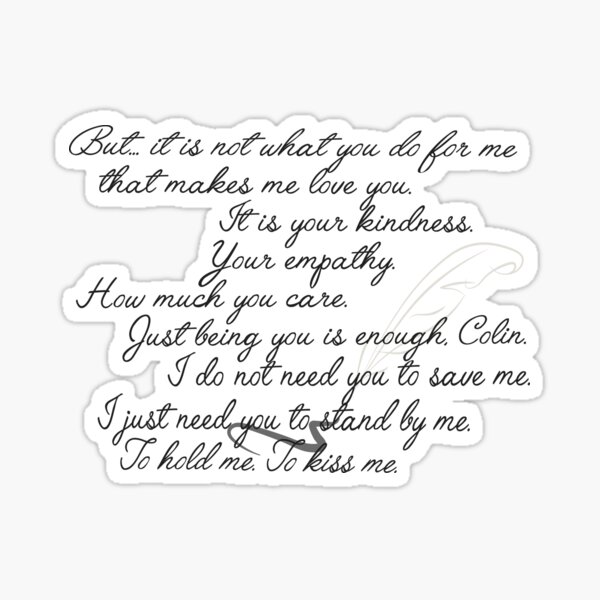 But... it is not what you do for me
that makes me love you.
It is your kindness.
Your empathy.
How much you care.
Just being you is enough, Colin.
I do not need you to save me.
I just need you to stand by me.
To hold me. To kiss me.